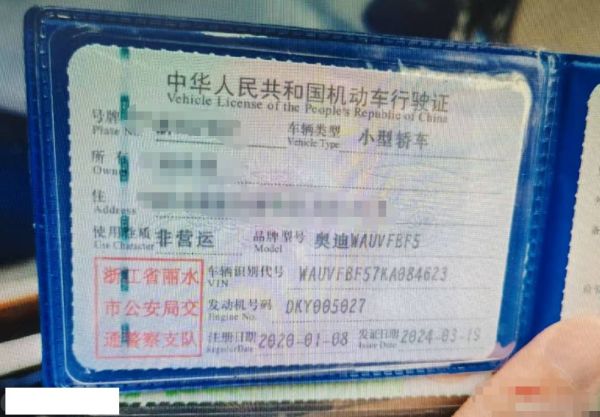 中华人民共和国机动车行驶证
Vehicle License of the People's Republic of China
号牌
Plate No.
车辆类型 小型轿车
Vehicle Type
所有
Owner
住
Address
使用性质 非营运 品牌型号 奥迪WAUVFBF5
Use Character Model
浙江省丽水
市公安局交
通警察支队
车辆识别代号 WAUVFBF57KA084623
VIN
发动机号码 DKY005027
Engine No.
注册日期 2020-01-08 发证日期 2024-03-19
Register Date Issue Date